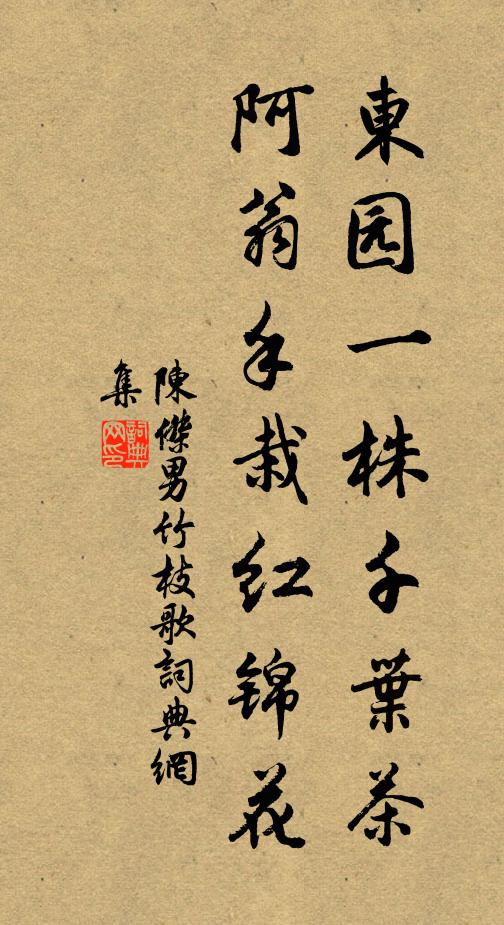 東园一株千葉茶
阿翁手栽红锦花
陳傑男竹枝歌詞典網
集
詞典
网印